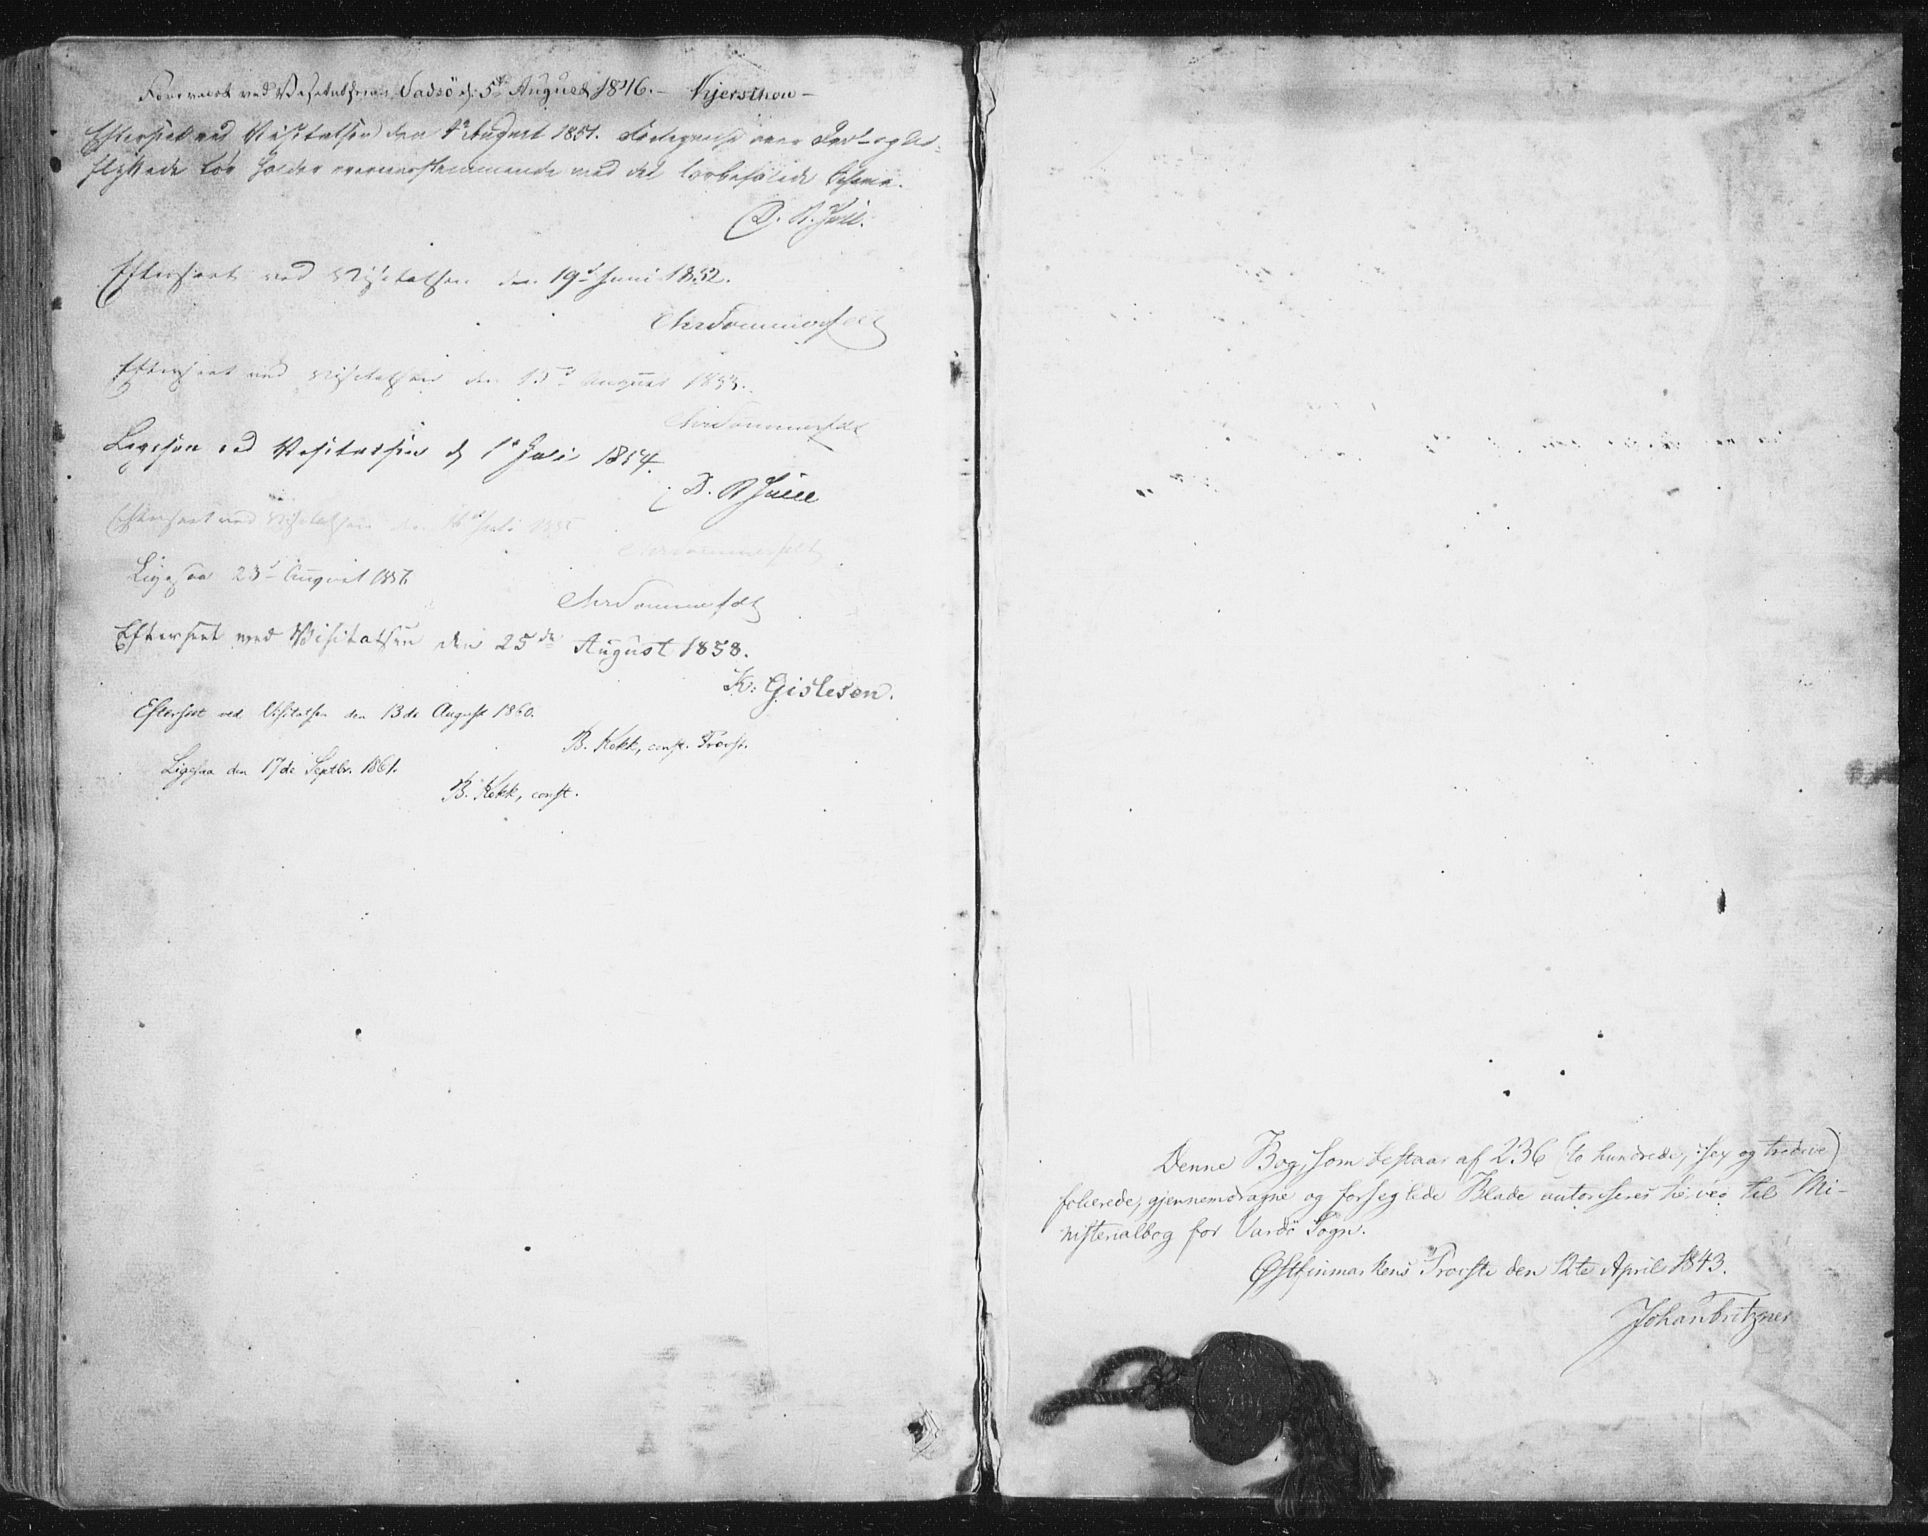 Foreviist ved Visitatsen i Vadsö d: 5te August 1846. – Kjerschow –
Efterseet ved Visitatsen den August 1851. Fortegnelse over Ind- og Ud-
flyttede bør holdes overensstemmende med det anbefalede Schema.
D. B. Juell.
Efterseet ved Visitatsen den 19de Juni 1852.
Chr Sommerfelt
Efterseet ved Visitatsen den 15de August 1853.
Chr Sommerfelt
Ligesaa ved Visitatsen d 1e Juli 1854.
D. B Juell
Efterseet ved Visitatsen den 16de Juli 1855
Chr Sommerfelt
Ligesaa 23de August 1857.
Chr Sommerfelt
Efterseet ved Visitatsen den 25de August 1858.
K: Gislesen.
Efterseet ved Visitatsen den 13de August 1860.
B. Kokk, const. Provst.
Ligesaa den 17de Septbr. 1861.
B. Kokk, const.
Denne Bog, som bestaar af 236 (to hundrede, sex og tredive)
folierede, gjennemdragne og forseglede Blade autoriseres herved til Mi-
nisterialbog for Vardö Sogn.
Østfinmarkens Provsti den 12te April 1843.
Johan Fritzner